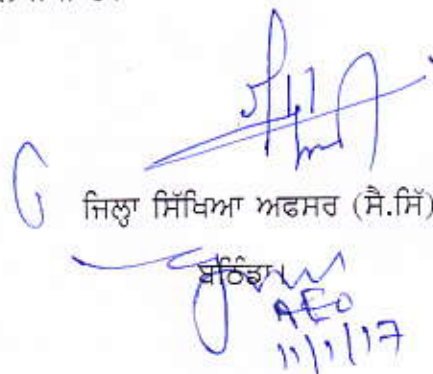 ਜਿਲ੍ਹਾ ਸਿੱਖਿਆ ਅਫਸਰ (ਸੈ.ਸਿੱ)
ਬਠਿੰਡਾ।
AEO
11/1/17